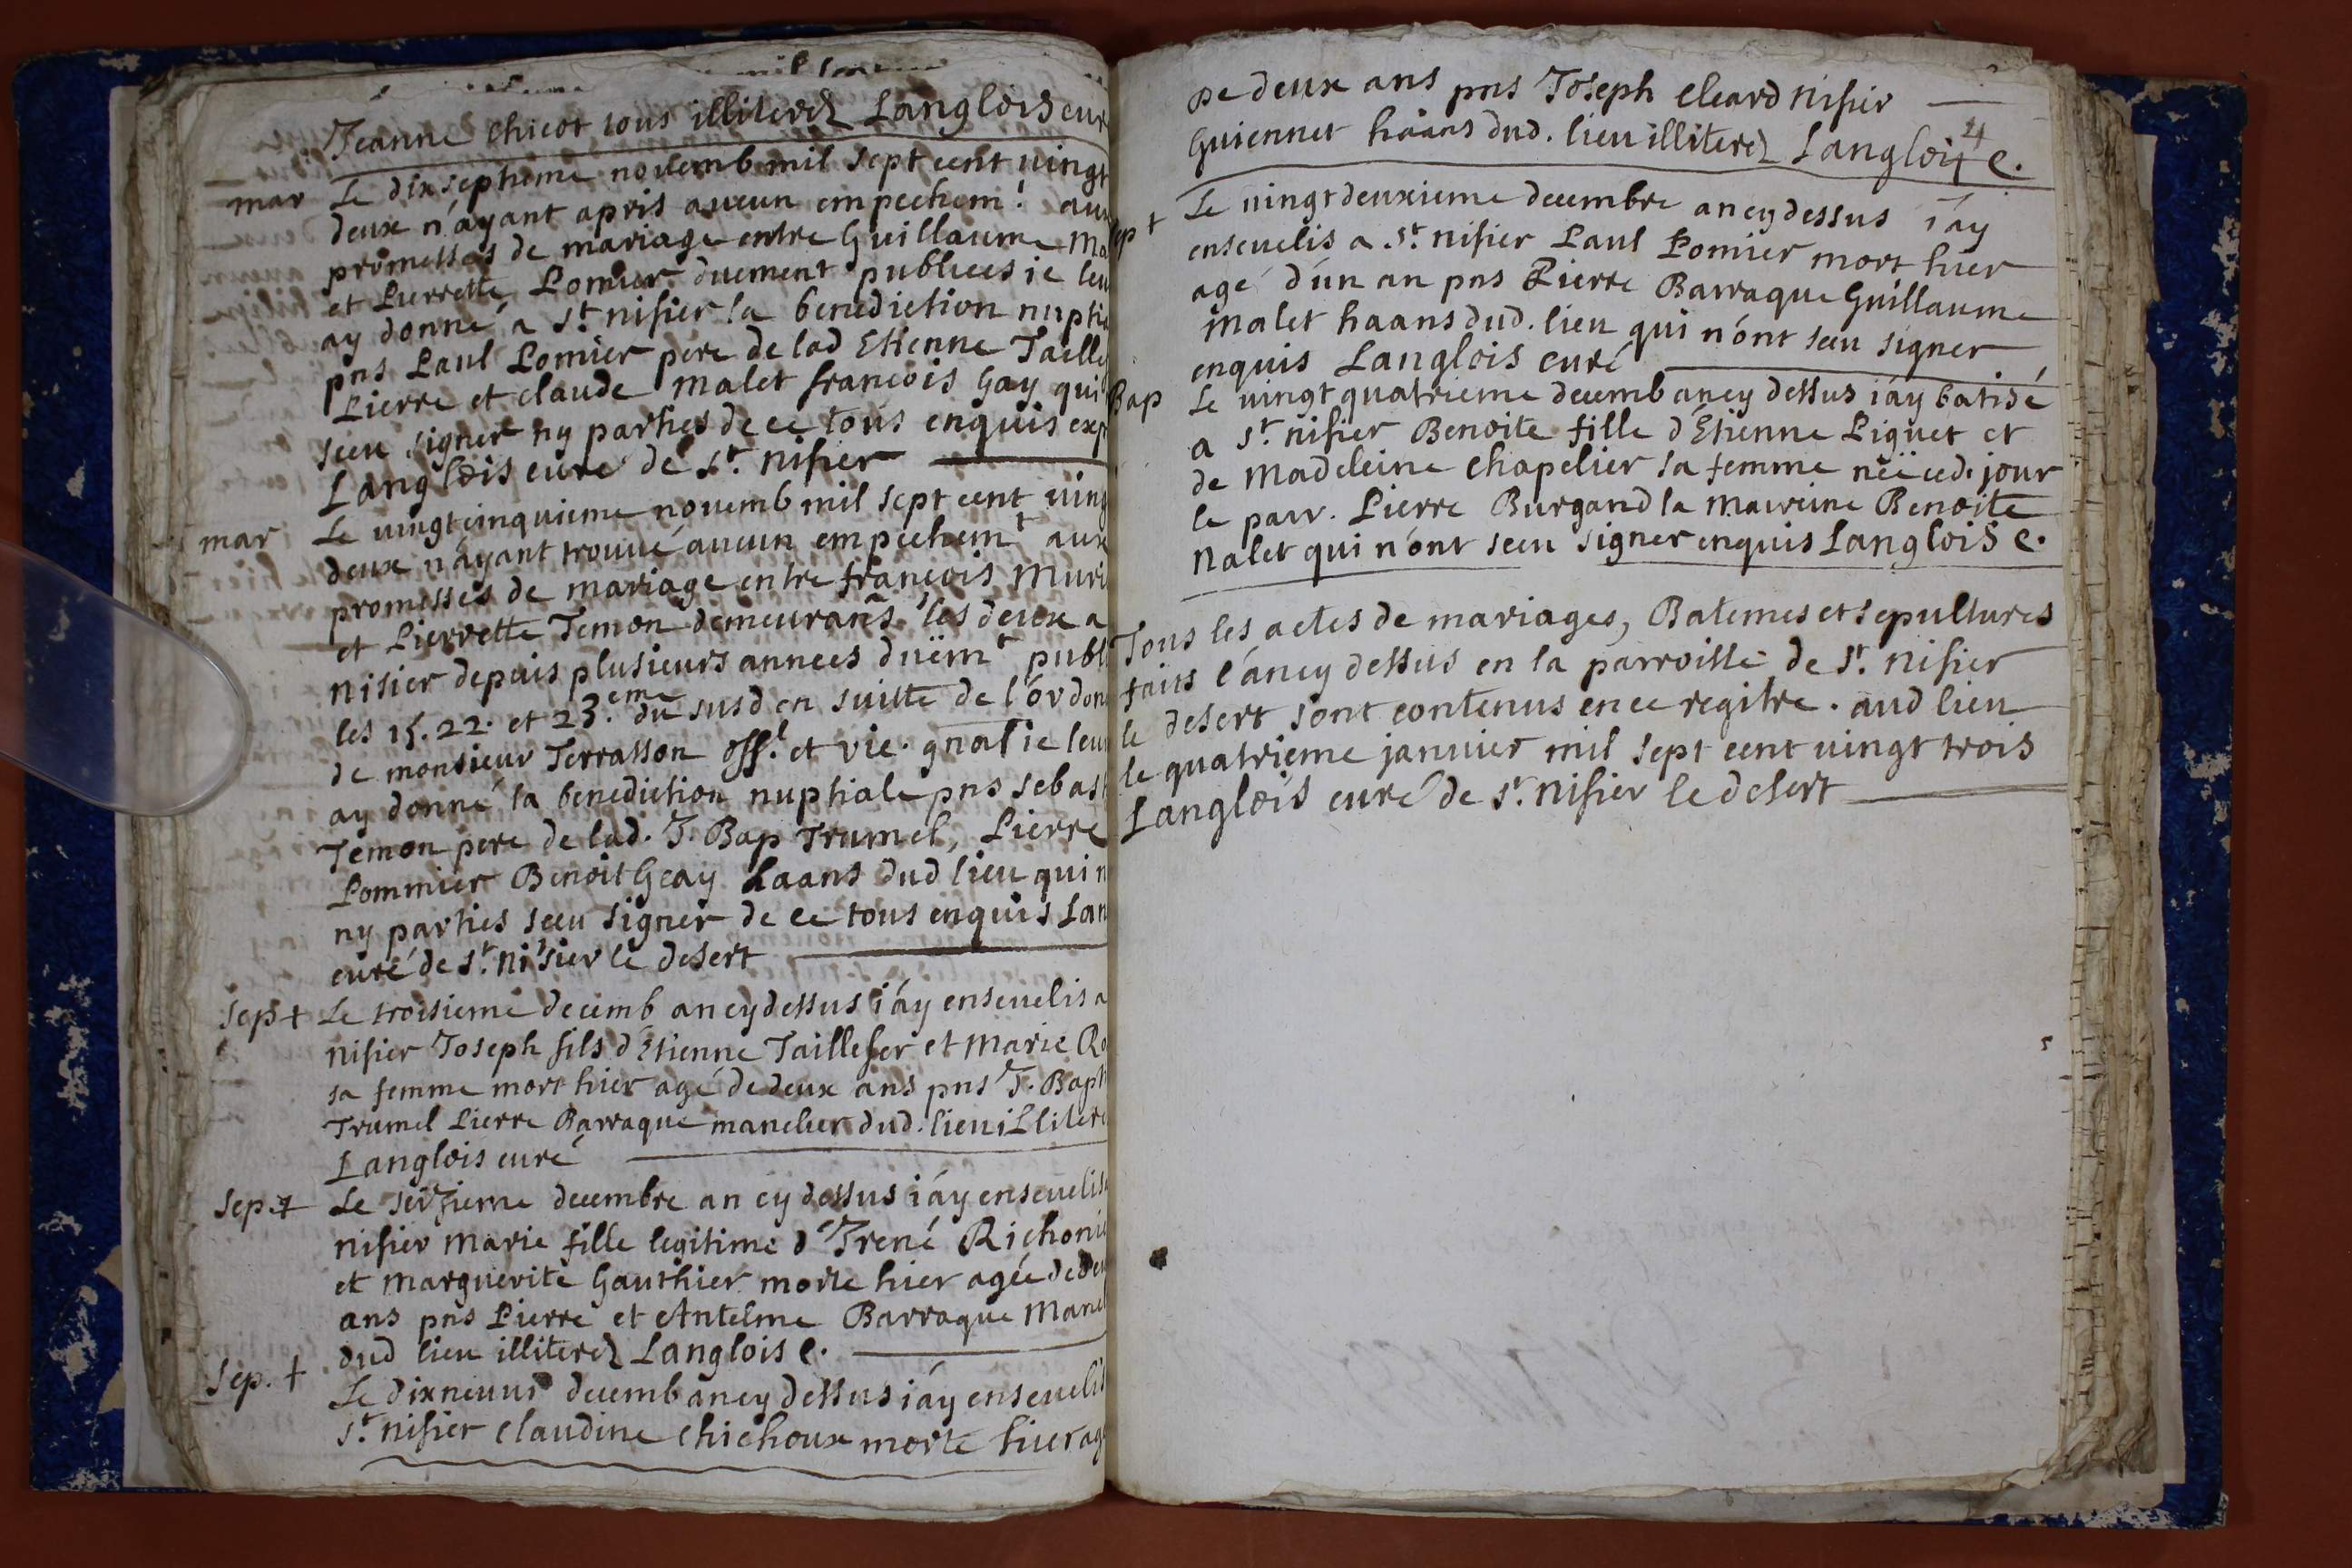 Jeanne Chicot tous illiterez Langlois cur
mar Le dixseptieme novemb mil sept cent vingt
deux n'áyant apris aucun empechem.t aux
promesses de mariage entre Guillaume Ma
et Pierrette Pomier duement publiees ie leu
ay donné a St. nisier la benediction nuptia
pns Paul Pomier pere de lad Etienne Taille
Pierre et claude Malet francois Gay qui
sceu signer ny parties de ce tous enquis exp
Langlois curé de St. nisier
mar Le vingtcinquieme novemb mil sept cent ving
deux n'áyant trouvé aucun empechemt aux
promesses de mariage entre françois Muri
et Pierrette Temon demeurans les deux a
nisier depuis plusieurs annees duëmt publ
les 15. 22. et 23.eme du susd en suitte de l'órdon
de monsieur Terrasson off.l et vic. gnal ie leur
ay donné la benediction nuptiale pns sebast
Temon pere de lad. J. Bap Trumel, Pierre
Pommier Benoit Geay haans dud lieu qui n
ny parties sceu signer de ce tous enquis Lan
curé de St. nisier le desert
sep + Le troisieme decemb an cy dessus i'áy ensevelis a
nisier Joseph fils d'Etienne Taillefer et Marie Ro
sa femme mort hier agé de deux ans pns J. Bapt
Trumel Pierre Barraque manelier dud. lieu illitere
Langlois curé
sep. + Le seizieme decembre an cy dessus i'áy ensevelis
nisier Marie fille legitime d'Irené Richonie
et Marguerite Gauthier morte hier agée de deu
ans pns Pierre et Antelme Barraque Manel
dud lieu illiterez Langlois c.
sep. + Le dixneuvie decemb an cy dessus i'áy ensevelis
St. nisier claudine Chichoux morte hier ag
de deux ans pns Joseph Cleard nisier
Guiennet haans dud. lieu illiterez Langlois c.
4
sep + Le vingtdeuxieme decembre an cy dessus i'áy
ensevelis a St. nisier Paul Pomier mort hier
agé d'ún an pns Pierre Barraque Guillaume
Malet haans dud. lieu qui n'ónt sceu signer
enquis Langlois curé
Bap Le vingtquatrieme decemb an cy dessus i'áy batisé
a St. nisier Benoite fille d'Étienne Piguet et
de Madeleine Chapelier sa femme néë ced. jour
le parr. Pierre Burgand la Marreine Benoite
Nalet qui n'ónt sceu signer enquis Langlois c.
Tous les actes de mariages, Batemes et sepultures
faits l'án cy dessus en la parroisse de St. nisier
le desert sont contenus en ce regitre. aud lieu
le quatrieme janvier mil sept cent vingt trois
Langlois curé de St. nisier le desert